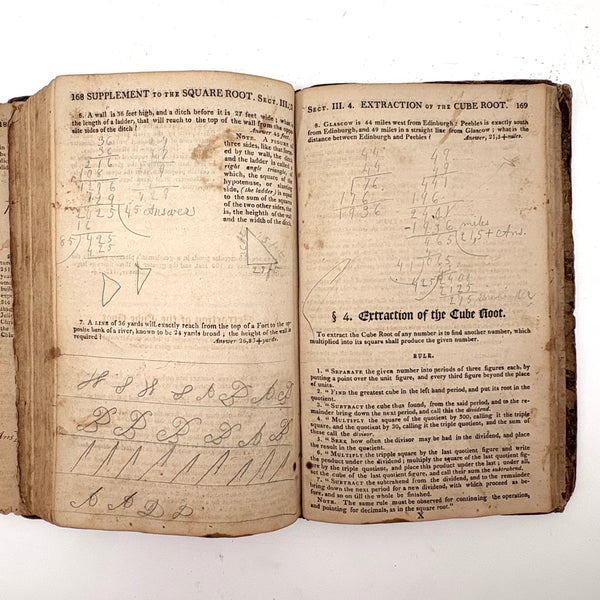 168 SUPPLEMENT TO THE SQUARE ROOT. SECT. III.
6. A wall is 36 feet high, and a ditch before it is 27 feet wide; what is
the length of a ladder, that will reach to the top of the wall from the oppo
site sides of the ditch?
Answer 45 feet.
NOTE. A FIGURE of
three sides, like that form
ed by the wall, the ditch
and the ladder is called a
right angle triangle, of
which, the square of the
hypotenuse, or slanting
side, (the ladder) is equal
to the sum of the squares
of the two other sides, that
is, the heighth of the wall
and the width of the ditch.
36
216
108
1296
729
2025 (45 Answer
16
85) 425
425
7. A LINE of 36 yards will exactly reach from the top of a Fort to the op-
posite bank of a river, known to be 24 yards broad; the height of the wall is
required?
Answer 26,83+yards.
SECT. III. 4. EXTRACTION OF THE CUBE ROOT. 169
8. GLASGOW is 44 miles west from Edinburgh; Peebles is exactly south
from Edinburgh, and 49 miles in a straight line from Glascow; what is the
distance between Edinburgh and Peebles?
Answer, 21,5+miles.
44
44
176
176
1936
49
49
441
196
2401
1936 miles
465 (21,5+ Ans.
4
41) 65
41
425) 2400
2125
275 Remainder
§ 4. Extraction of the Cube Root.
To extract the Cube Root of any number is to find another number, which
multiplied into its square shall produce the given number.
RULE.
1. "SEPARATE the given number into periods of three figures each, by
putting a point over the unit figure, and every third figure beyond the place
of units.
2. "FIND the greatest cube in the left hand period, and put its root in the
quotient.
3. "SUBTRACT the cube thus found, from the said period, and to the re-
mainder bring down the next period, and call this the dividend.
4. "MULTIPLY the square of the quotient by 300, calling it the triple
square, and the quotient by 30, calling it the triple quotient, and the sum of
these call the divisor.
5. "SEEK how often the divisor may be had in the dividend, and place
the result in the quotient.
6. "MULTIPLY the tripple square by the last quotient figure and write
the product under the dividend; multiply the square of the last quotient fig-
ure by the triple quotient, and place this product under the last; under all,
set the cube of the last quotient figure, and call their sum the subtrahend.
7. "SUBTRACT the subtrahend from the dividend, and to the remainder
bring down the next period for a new dividend, with which proceed as be-
fore, and so on till the whole be finished.
NOTE. The same rule must be observed for continuing the operation,
and pointing for decimals, as in the square root."
X